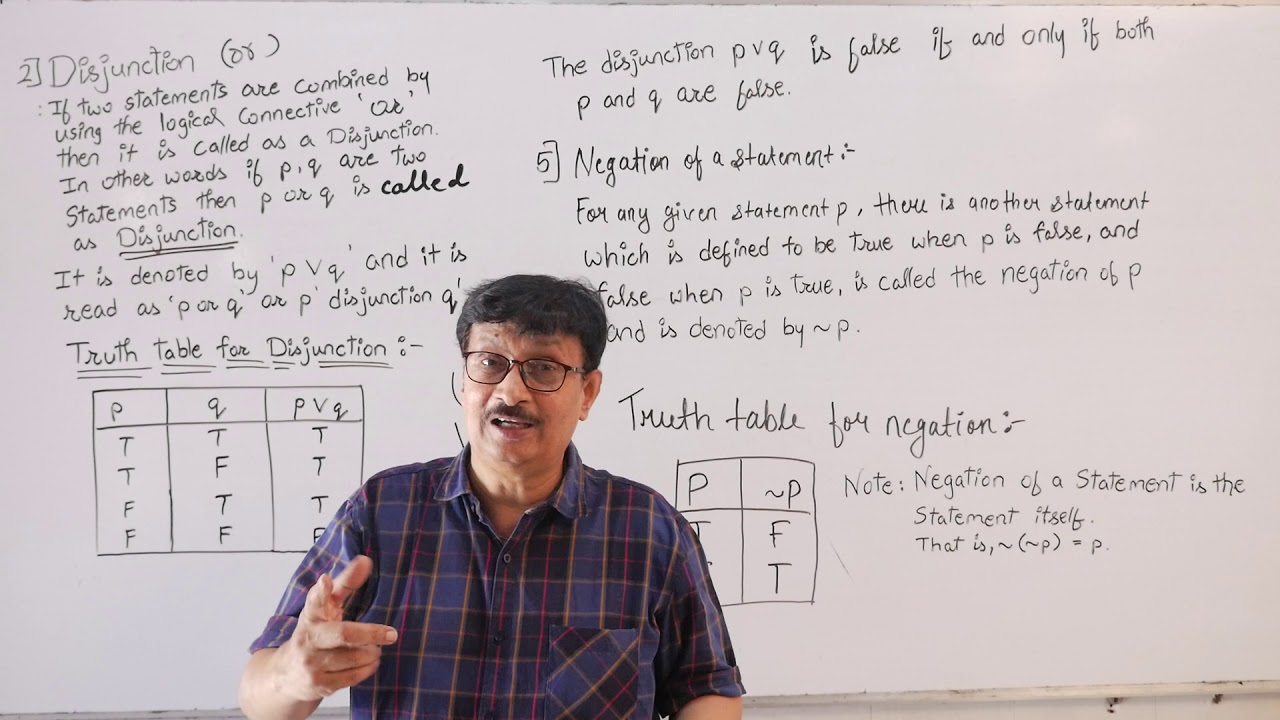 2] Disjunction (or)
: If two statements are combined by
using the logical connective 'or'
then it is called as a Disjunction.
In other words if p, q are two
Statements then p or q is called
as Disjunction.
It is denoted by 'p ∨ q' and it is
read as 'p or q' or p' disjunction q'
Truth table for Disjunction :-
p q p ∨ q
T T T
T F T
F T T
F F F
The disjunction p ∨ q is false if and only if both
p and q are false.
5] Negation of a statement :-
For any given statement p, there is another statement
which is defined to be true when p is false, and
false when p is true, is called the negation of p
and is denoted by ~ p.
Truth table for negation :-
P ~P
T F
T
Note: Negation of a Statement is the
Statement itself.
That is, ~ (~p) = p.